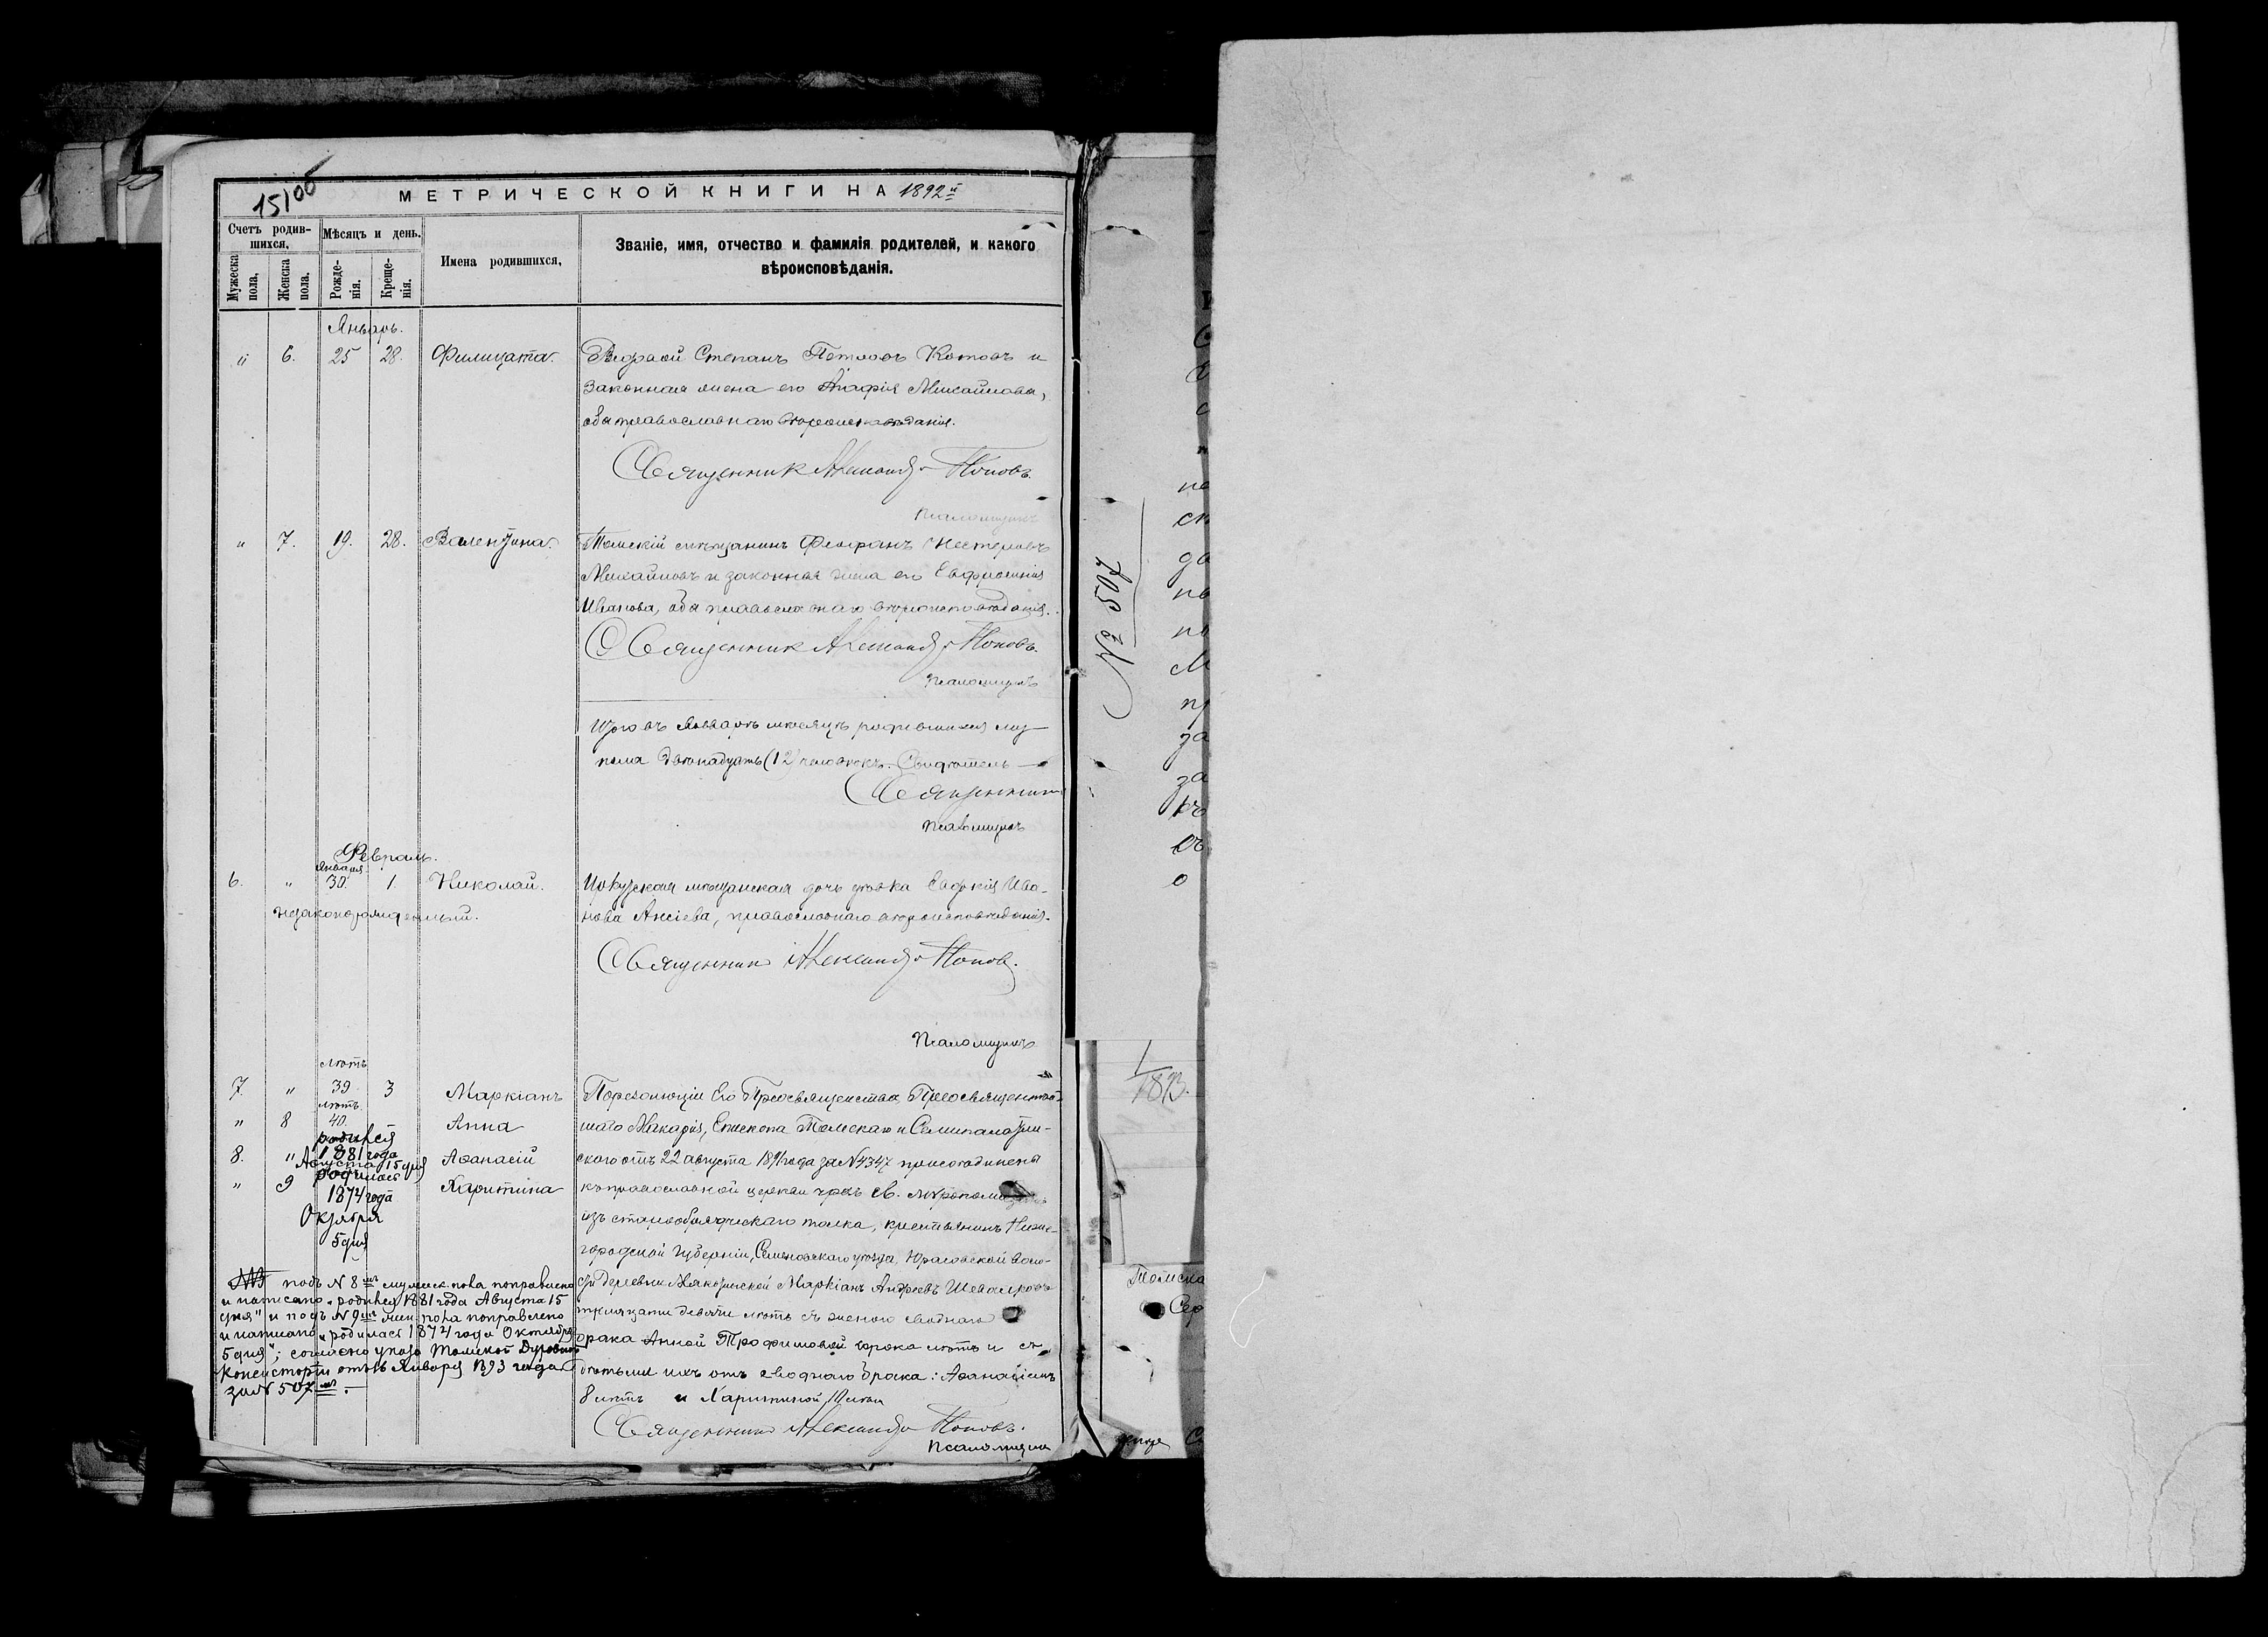 15/об
МЕТРИЧЕСКОЙ КНИГИ НА 1892й
Счетъ родив-
шихся,
Мѣсяцъ и день.
Имена родившихся,
Званіе, имя, отчество и фамилія родителей, и какого
вѣроисповѣданія.
Мужеска
пола,
Женска
пола.
Рожде-
нія.
Креще-
нія.
Январь.
" 6. 25 28. Филицата.
Степанъ Петровъ Котовъ и
законная жена его Агафія Михайлова,
оба православнаго вѣроисповѣданія.
Священникъ Александръ Поповъ.
Псаломщикъ
" 7. 19. 28. Валентина.
Томскій мѣщанинъ Феофанъ Нестеровъ
Михайловъ и законная жена его Евфросинія
Иванова, оба православнаго вѣроисповѣданія.
Священникъ Александръ Поповъ.
Псаломщикъ
Итого въ Январѣ мѣсяцѣ родившихся муж
пола двѣнадцать (12) человѣкъ.
Священникъ
Псаломщикъ
Февраль.
Января
6. " 30. 1. Николай.
незаконнорожденный.
Иркутская мѣщанская дочь дѣвка Евдокія Ива-
нова Аксіева, православнаго вѣроисповѣданія.
Священникъ Александръ Поповъ.
Псаломщикъ
лѣтъ
7. " 39 3 Маркіанъ
лѣтъ
" 8 40. Анна
родился
8. " 1881 года Аѳанасій
Августа 15 дня
родилась
" 9 1874 года Харитина
Октября
5 дня
По резолюціи Его Преосвященства, Преосвященнѣй-
шаго Макарія, Епископа Томскаго и Семипалатин-
скаго отъ 22 августа 1891 года за № 4347 присоединены
къ православной церкви чрезъ св. мѵропомазаніе
изъ старообрядческаго толка, крестьянинъ Ниже-
городской губерніи, Семеновскаго уѣзда, Юрасовской воло-
сти деревни Маркіанъ Андреевъ
тридцати девяти лѣтъ съ женою своднаго
брака Анной Трофимовой сорока лѣтъ и съ
дѣтьми ихъ отъ своднаго брака: Аѳанасіемъ
8 лѣтъ и Харитиной 10 лѣтъ
Священникъ Александръ Поповъ.
Псаломщикъ
подъ № 8мъ мужеск. пола поправлено
и написано "родился 1881 года Августа 15
дня" и подъ № 9мъ жен. пола поправлено
и написано "родилась 1874 года Октября
5 дня"; согласно указа Томской Духовной
Консисторіи отъ Января 1893 года
за № 507мъ.
№ 507
1/1893.
Томска